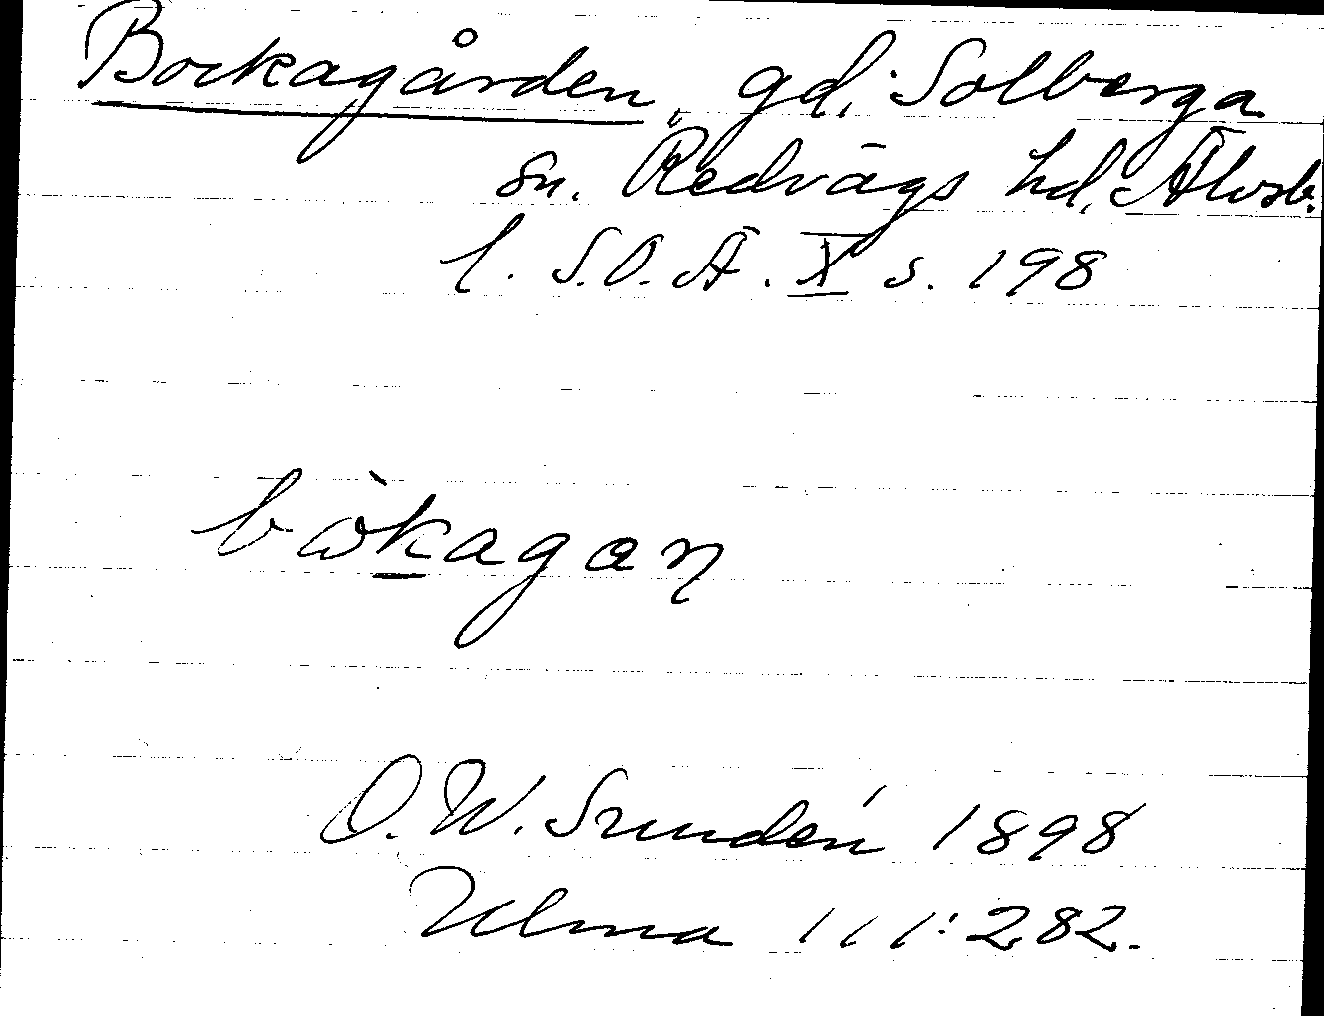 Bockagården, gd, Solberga
sn. Redvägs hd, Älvsb.
l. S.O.Ä. X s. 198
bòkagaɳ
O. W. Sundén 1898
Ulma 111:282.